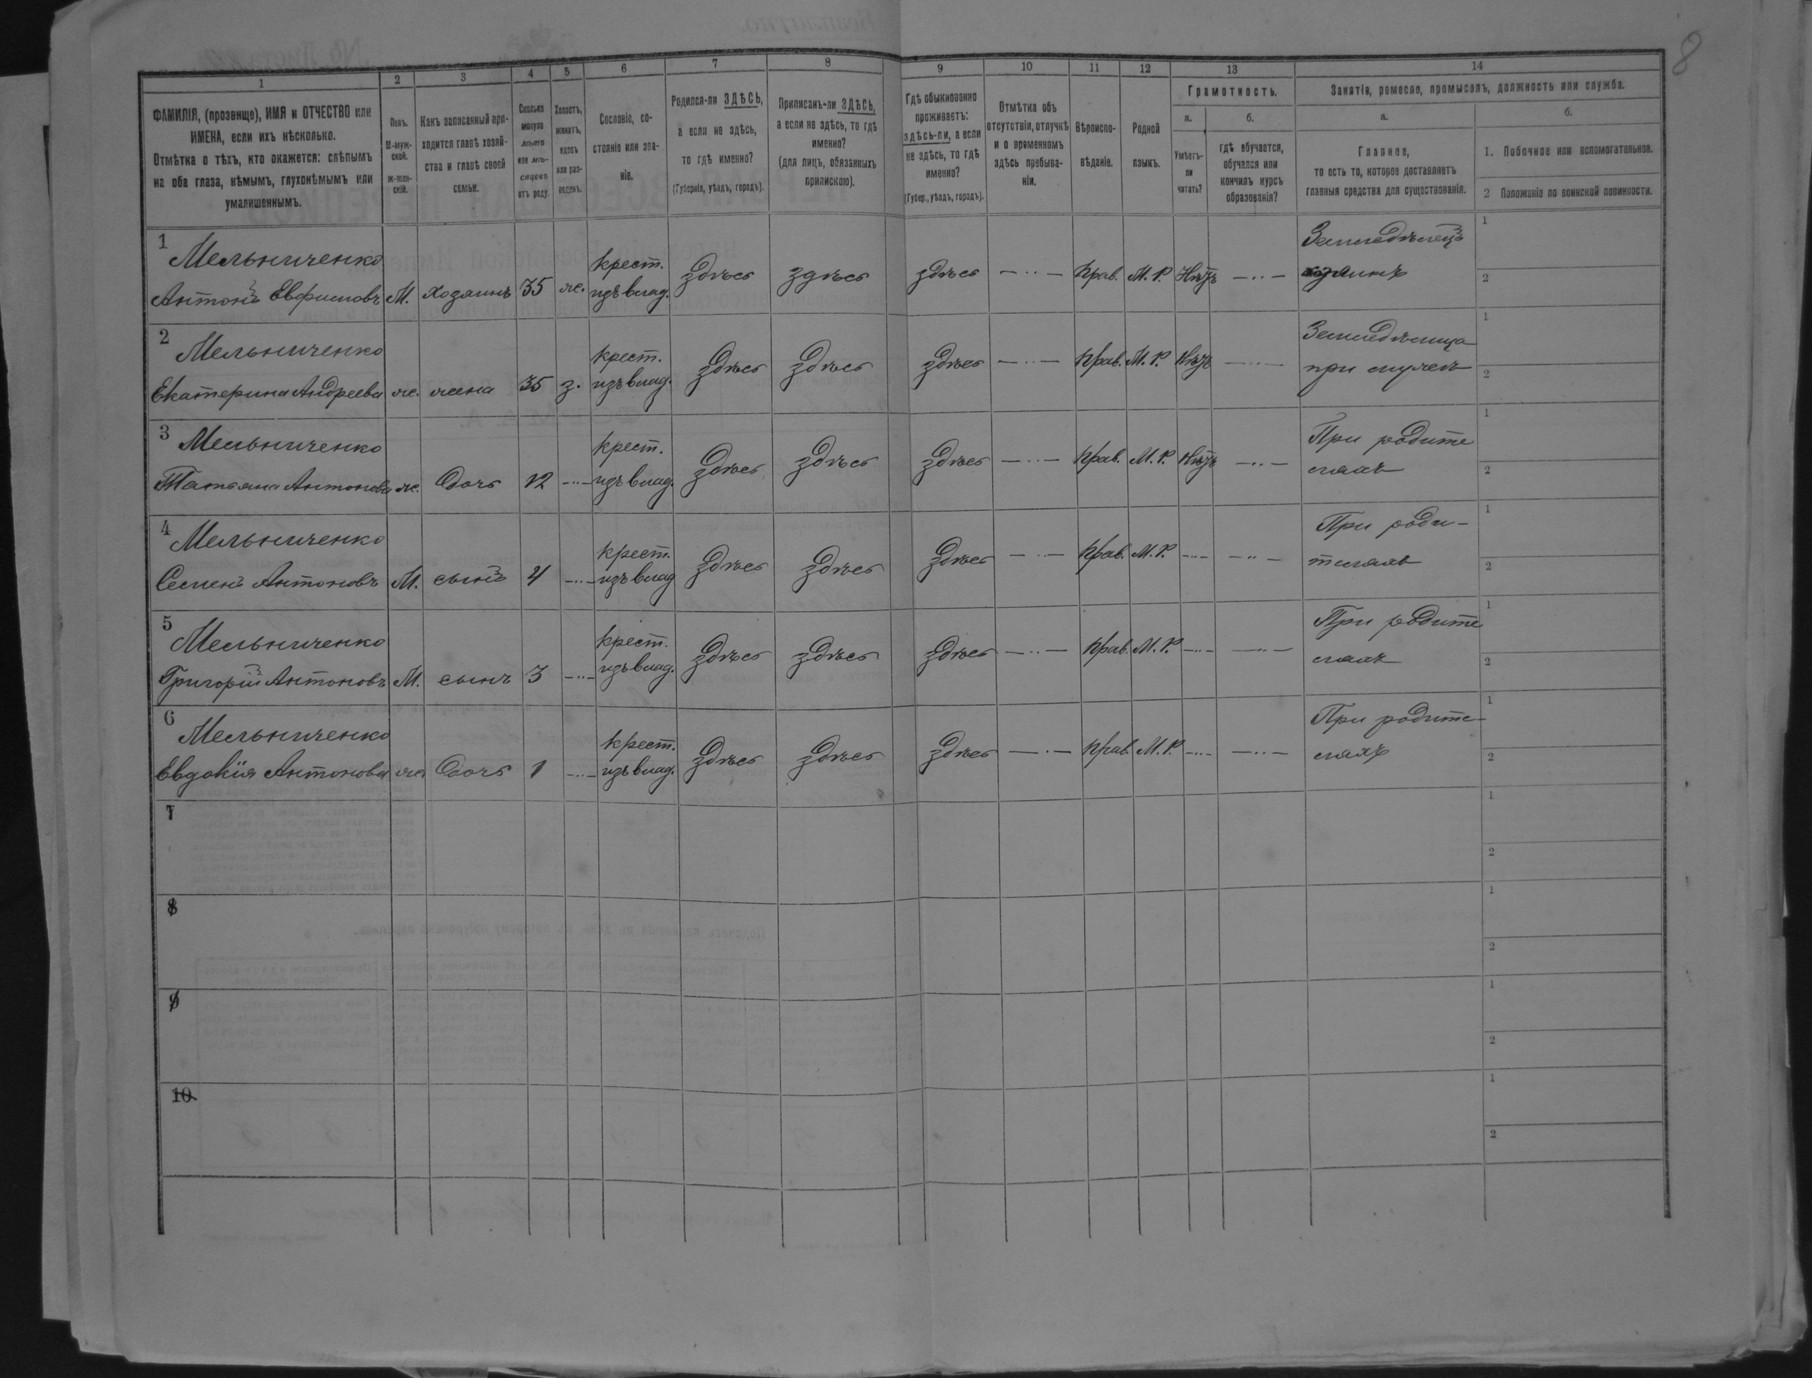 8
1 2 3 4 5 6 7 8 9 10 11 12 13 14
ФАМИЛІЯ, (прозвище), ИМЯ и ОТЧЕСТВО или
ИМЕНА, если ихъ нѣсколько.
Отмѣтка о тѣхъ, кто окажется: слѣпымъ
на оба глаза, нѣмымъ, глухонѣмымъ или
умалишеннымъ.
Полъ.
М-муж-
ской.
Ж-жен-
скій.
Какъ записанный при-
ходится главѣ хозяй-
ства и главѣ своей
семьи.
Сколько
минуло
лѣтъ
или мѣ-
сяцевъ
отъ роду.
Холостъ,
женатъ,
вдовъ
или раз-
веденъ.
Сословіе, со-
стояніе или зва-
ніе.
Родился-ли ЗДѢСЬ,
а если не здѣсь,
то гдѣ именно?
(Губернія, уѣздъ, городъ).
Приписанъ-ли ЗДѢСЬ,
а если не здѣсь, то гдѣ
именно?
(для лицъ, обязанныхъ
припискою).
Гдѣ обыкновенно
проживаетъ:
здѣсь-ли, а если
не здѣсь, то гдѣ
именно?
(Губер., уѣздъ, городъ).
Отмѣтка объ
отсутствіи, отлучкѣ
и о временномъ
здѣсь пребыва-
ніи.
Вѣроиспо-
вѣданіе.
Родной
языкъ.
Грамотность.
а.
Умѣетъ-
ли
читать?
б.
гдѣ обучается,
обучался или
кончилъ курсъ
образованія?
Занятія, ремесло, промыселъ, должность или служба.
а.
Главное,
то есть то, которое доставляетъ
главныя средства для существованія.
б.
1. Побочное или вспомогательное.
2 Положеніе по воинской повинности.
1 Мельниченко
Антонъ Евфимовъ М. хозяинъ 35 ж. крест. изъ влад. здѣсь здѣсь здѣсь — ·· — прав. М. Р. Нѣтъ — ·· — Земледѣлецъ хозяинъ 1 2
2 Мельниченко
Екатерина Андреева ж. жена 35 з. крест. изъ влад. здѣсь здѣсь здѣсь — ·· — прав. М. Р. Нѣтъ — ·· — Земледѣлица при мужѣ 1 2
3 Мельниченко
Татьяна Антонова ж. дочь 12 — ·· — крест. изъ влад. здѣсь здѣсь здѣсь — ·· — прав. М. Р. Нѣтъ — ·· — При родите ляхъ 1 2
4 Мельниченко
Семенъ Антоновъ М. сынъ 4 — ·· — крест. изъ влад здѣсь здѣсь здѣсь — ·· — прав. М. Р. — ·· — — ·· — При роди- теляхъ 1 2
5 Мельниченко
Григорій Антоновъ М. сынъ 3 — ·· — крест. изъ влад. здѣсь здѣсь здѣсь — ·· — прав. М. Р. — ·· — — ·· — При родите ляхъ 1 2
6 Мельниченко
Евдокія Антонова ж. дочь 1 — ·· — крест. изъ влад. здѣсь здѣсь здѣсь — ·· — прав. М. Р. — ·· — — ·· — При родите- ляхъ 1 2
7 1 2
8 1 2
9 1 2
10 1 2